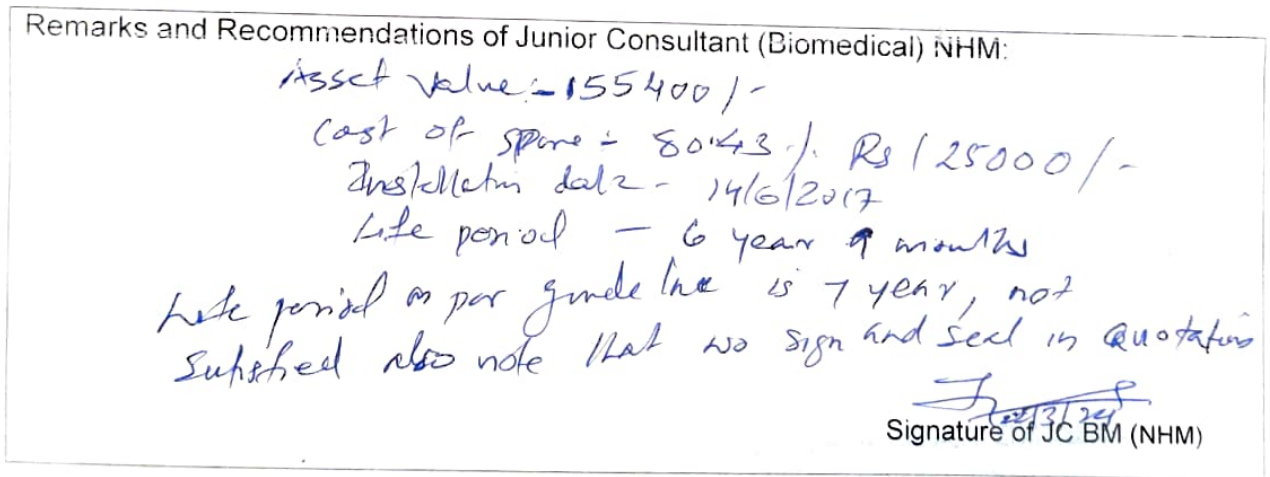 Remarks and Recommendations of Junior Consultant (Biomedical) NHM:
Asset Value :- 155400/-
Cost of spare :- 80.43 %. Rs 125000/-
Installation date - 14/6/2017
Life period - 6 year 9 months
Life period as per guide line is 7 year, not
Satisfied also note that no sign and seal in Quotation
22/3/24
Signature of JC BM (NHM)